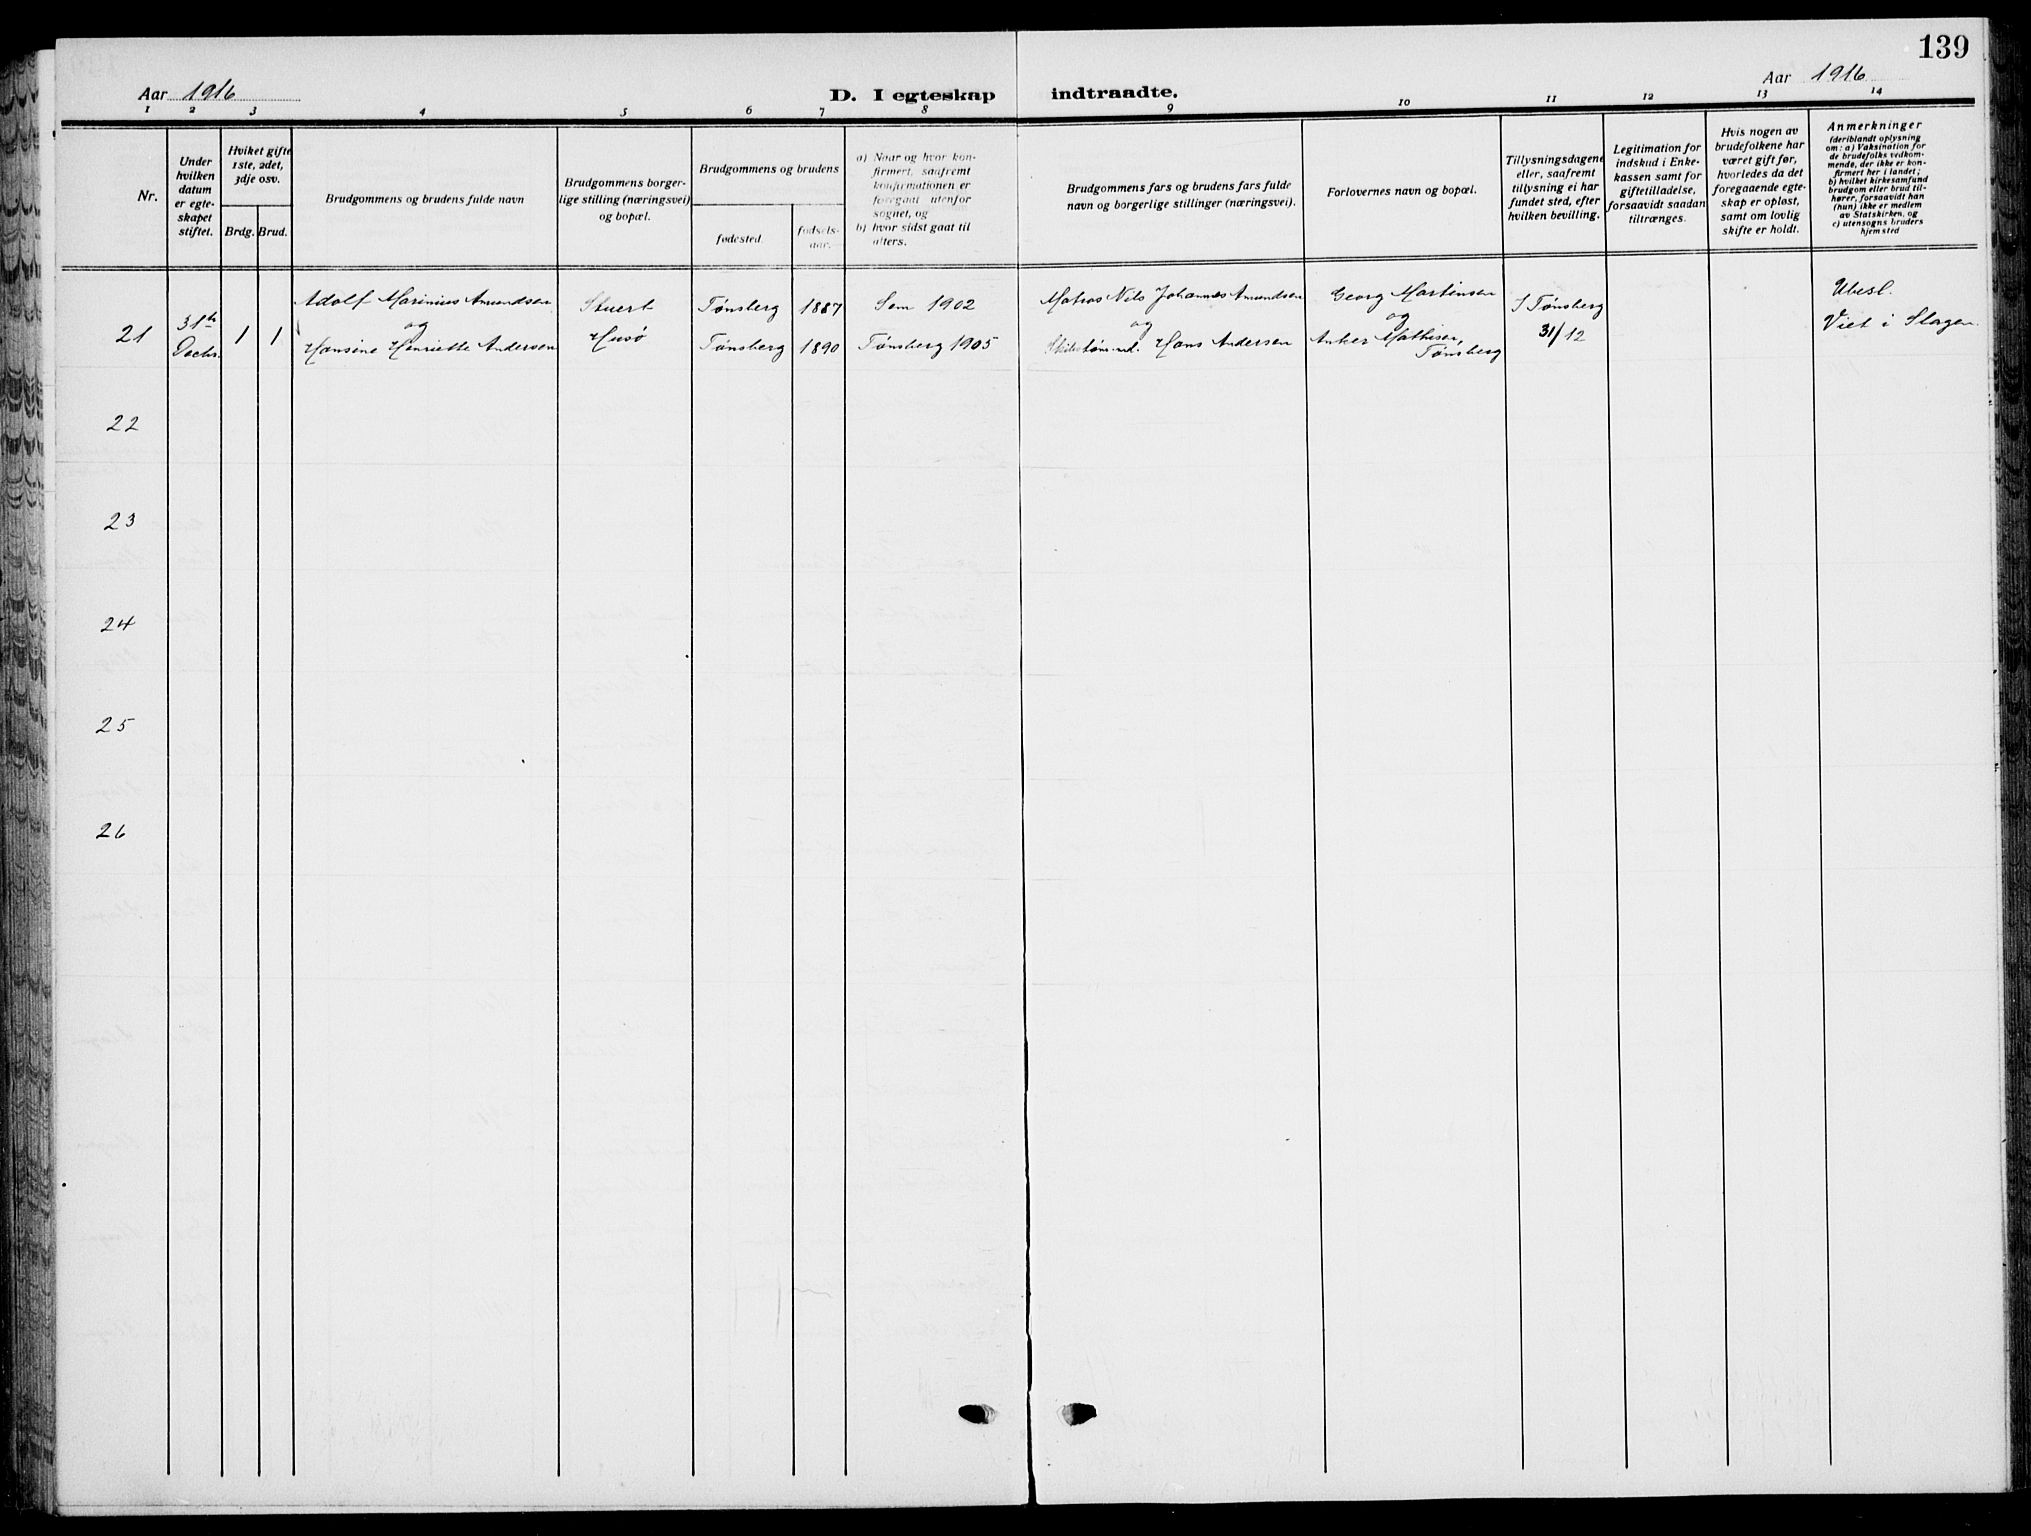 139
Aar 1916
D. I egteskap indtraadte.
Aar 1916
1 2 3 4 5 6 7 8 9 10 11 12 13 14
Nr.
Under
hvilken
datum
er egte-
skapet
stiftet.
Hviket gifte
1ste, 2det,
3dje osv.
Brdg. Brud.
Brudgommens og brudens fulde navn
Brudgommens borger-
lige stilling (næringsvei)
og bopæl.
Brudgommens og brudens
fødested.
fødsels-
aar.
a) Naar og hvor kon-
firmert, saafremt
konfirmationen er
foregaat utenfor
sognet, og
b) hvor sidst gaat til
alters.
Brudgommens fars og brudens fars fulde
navn og borgerlige stillinger (næringsvei).
Forlovernes navn og bopæl.
Tillysningsdagene
eller, saafremt
tillysning ei har
fundet sted, efter
hvilken bevilling.
Legitimation for
indskud i Enke-
kassen samt for
giftetilladelse,
forsaavidt saadan
tiltrænges.
Hvis nogen av
brudefolkene har
været gift før,
hvorledes da det
foregaaende egte-
skap er opløst,
samt om lovlig
skifte er holdt.
Anmerkninger
(deriblandt oplysning
om: a) Vaksination for
de brudefolks vedkom-
mende, der ikke er kon-
firmert her i landet;
b) hvilket kirkesamfund
brudgom eller brud til-
hører, forsaavidt han
(hun) ikke er medlem
av Statskirken, og
c) utensogns bruders
hjemsted
21
31te
Decbr.
1 1
Adolf Marinius Amundsen
og
Hansine Henriette Andersen
Stuert
Husø
Tønsberg 1887 Sem 1902
Tønsberg 1890 Tønsberg 1905
Matros Nils Johannes Amundsen
og
Hans Andersen
Georg Martinsen
og
Anker Mathisen,
Tønsberg
I Tønsberg
31/12
Ubesl.
Viet i Slagen.
22
23
24
25
26